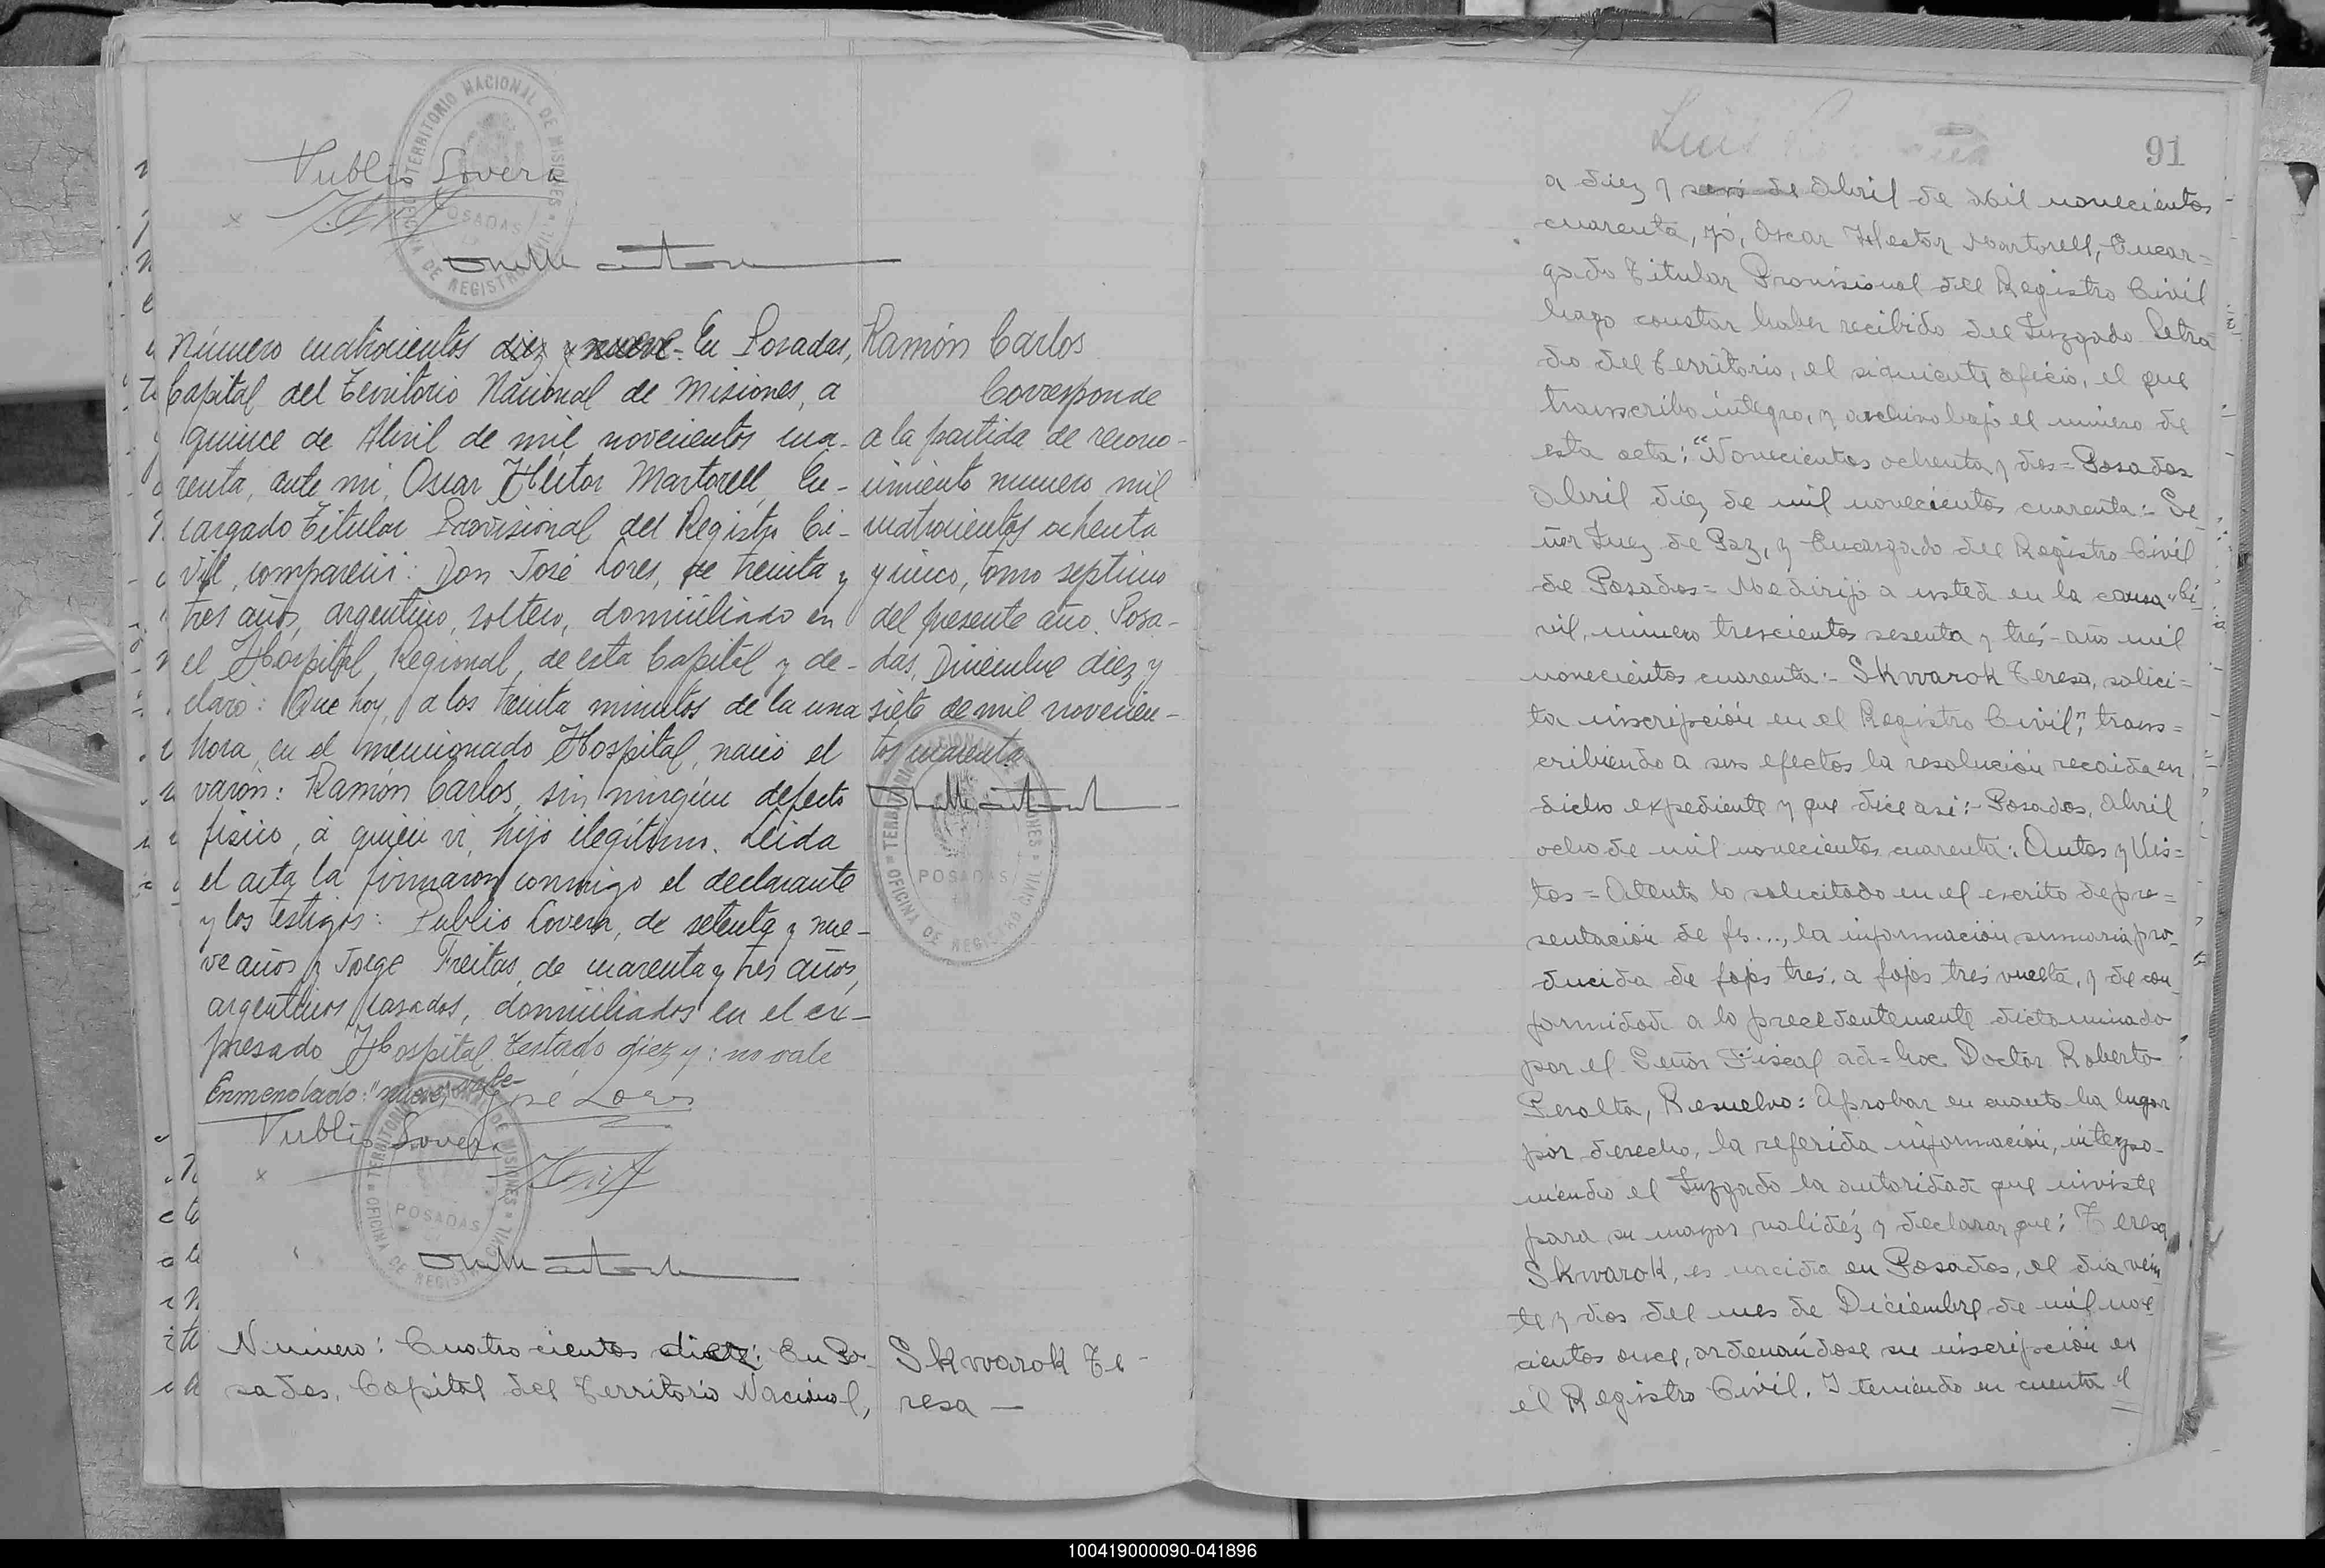 Publio Lovera
TERRITORIO NACIONAL DE MISIONES
OFICINA DE REGISTRO CIVIL
POSADAS
Número cuatrocientos diez y nueve. En Posadas,
Capital del Territorio Nacional de Misiones, a
quince de Abril de mil novecientos cua-
renta, ante mi, Oscar Héctor Martorell, En-
cargado Titular Provisional del Registro Ci-
vil, compareció: Don José Lores, de treinta y
tres años, argentino, soltero, domiciliado en
el Hospital Regional de esta Capital y de-
claró: Que hoy, a los treinta minutos de la una
hora, en el mencionado Hospital, nació el
varón: Ramón Carlos, sin ningún defecto
fisico, a quien vi, hijo ilegítimo. Leida
el acta la firmaron conmigo el declarante
y los testigos: Publio Lovera, de setenta y nue-
ve años y Jorge Freitas, de cuarenta y tres años,
argentinos casados, domiciliados en el ex-
presado Hospital. Testado diez y: no vale
Enmendado: "nueve, vale-
José Lores
Publio Lovera
TERRITORIO NACIONAL DE MISIONES
OFICINA DE REGISTRO CIVIL
POSADAS
Ramón Carlos
Corresponde
a la partida de recono-
cimiento numero mil
cuatrocientos ochenta
y cinco, tomo septimo
del presente año. Posa-
das, Diciembre diez y
siete de mil novecien-
tos cuarenta
TERRITORIO NACIONAL DE MISIONES
OFICINA DE REGISTRO CIVIL
POSADAS
Número: Cuatrocientos diez: En Po-
sadas, Capital del Territorio Nacional,
Skwarok Te-
resa —
91
a diez y seis de Abril de Mil novecientos
cuarenta, yó, Oscar Hector Martorell, Encar=
gado Titular Provisional del Registro Civil
hago constar haber recibido del Juzgado Letra
do del Territorio, el siguiente oficio, el que
transcribo integro, y archivo bajo el número de
esta acta: "Novecientos ochenta y dos = Posadas
Abril diez de mil novecientos cuarenta:- Se
ñor Juez de Paz, y Encargado del Registro Civil
de Posadas = Me dirijo a usted en la causa "Ci
vil, número trescientos sesenta y tres- año mil
novecientos cuarenta:- Skwarok Teresa, solici=
ta inscripción en el Registro Civil", trans=
cribiendo a sus efectos la resolución recaida en
dicho expediente y que dice asi:- Posadas, Abril
ocho de mil novecientos cuarenta: Autos y Vis=
tos = Atento lo solicitado en el escrito de pre=
sentación de fs..., la información sumaria pro-
ducida de fojas tres. a fojas tres vuelta, y de con
formidad a lo precedentemente dictaminado
por el Señor Fiscal ad=hoc Doctor Roberto
Peralta, Resuelvo: Aprobar en cuanto ha lugar
por derecho, la referida información, interpo-
niendo el Juzgado la autoridad que inviste
para su mayor validéz y declarar que: Teresa
Skwarok, es nacida en Posadas, el dia vein
te y dos del mes de Diciembre de mil nove
cientos once, ordenándose su inscripción en
el Registro Civil. I teniendo en cuenta el
100419000090-041896